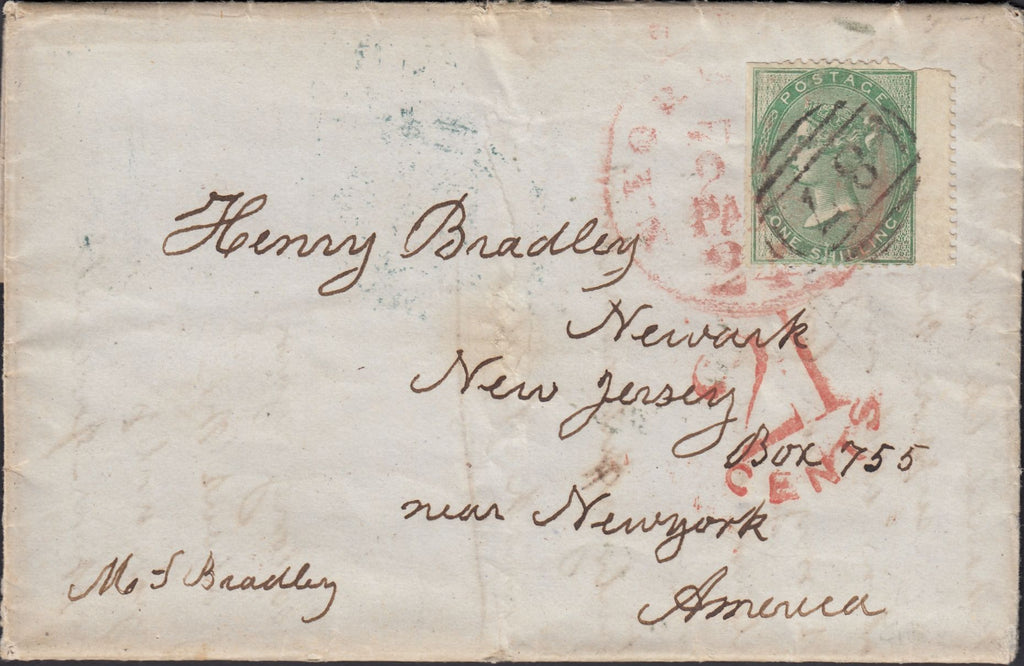 POSTAGE
ONE SHILLING
Henry Bradley
Newark
New Jersey
Box 755
near Newyork
America
PA
24
21
CENTS
Bradley